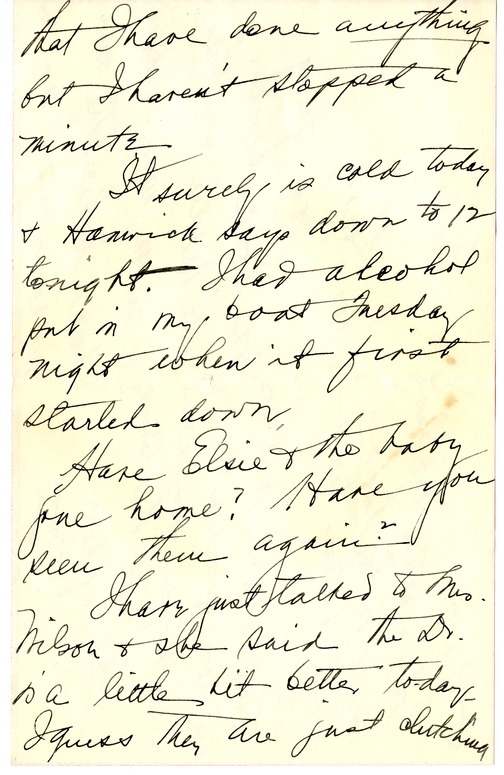 that I have done anything
but I haven't stopped a
minute
It surely is cold today
& Hamrick says down to 12
tonight. I had alcohol
put in my boat Tuesday
night when it first
started down,
Have Elsie & the baby
gone home? Have you
seen them again?
I have just talked to Mrs.
Wilson & she said the Dr.
is a little bit better today-
I guess they are just clutching